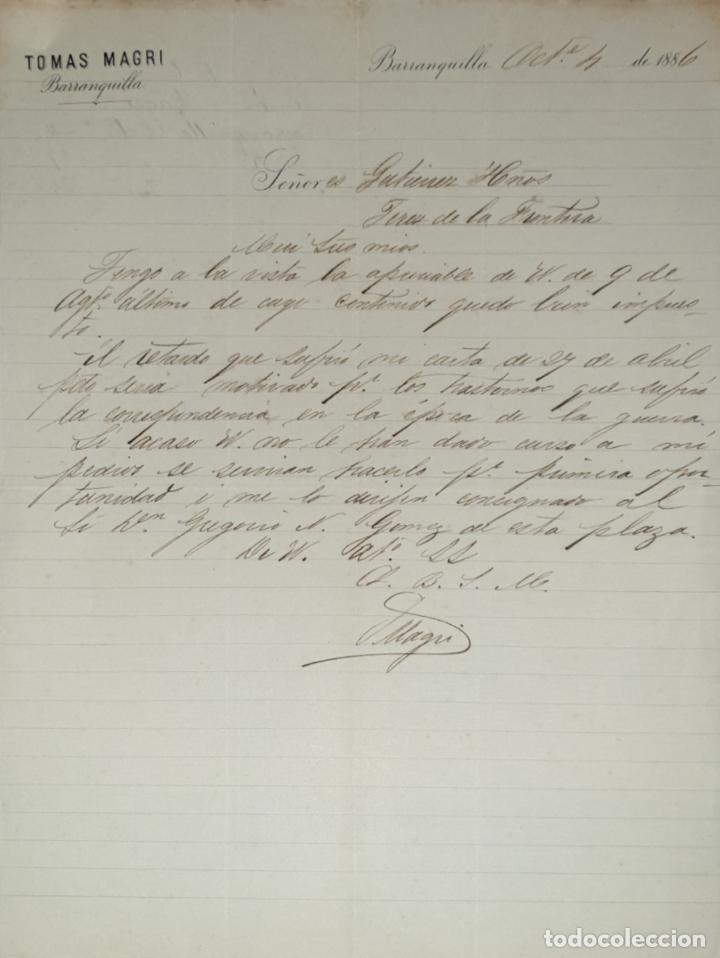 TOMAS MAGRI
Barranquilla
Barranquilla Oct.e 4 de 1886
Señores Gutierrez Hnos
Jerez de la Frontera
Mui Sres mios.
Tengo a la vista la apreciable de W. de 9 de
Agto último de cuyo contenido quedo bien impues-
to.
El retardo que sufrió mi carta de 27 de abril
pdo seria motivado pr. los trastornos que sufrió
la correspondencia en la época de la guerra.
Si acaso W. no le han dado curso a mi
pedido se serviran hacerlo pr. primera opor-
tunidad i me lo dirijen consignado al
Sr Dn Gregorio N. Gomez de esta plaza.
De W. ato. SS
Q. B. S. M.
T Magri
todocoleccion